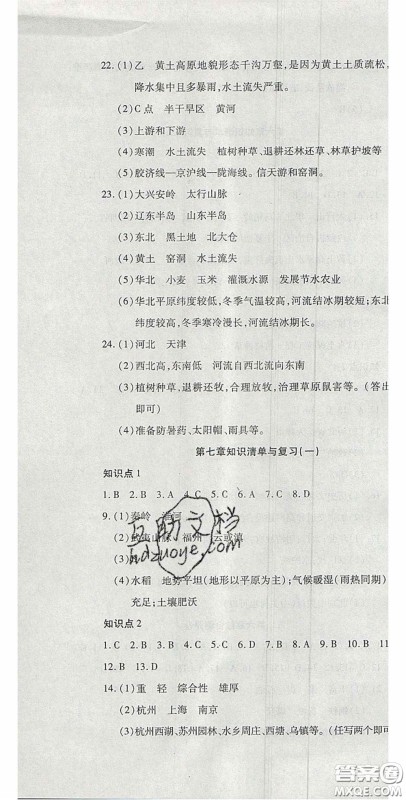 22. (1)乙　黄土高原地貌形态千沟万壑,是因为黄土土质疏松,
降水集中且多暴雨,水土流失严重。
(2)C点　半干旱区　黄河
(3)上游和下游
(4)寒潮　水土流失　植树种草、退耕还林还草、林草护坡等
(5)胶济线—京沪线—陇海线。信天游和窑洞。
23. (1)大兴安岭　太行山脉
(2)辽东半岛　山东半岛
(3)东北　黑土地　北大仓
(4)黄土　窑洞　水土流失
(5)华北　小麦　玉米　灌溉水源　发展节水农业
(6)华北平原纬度较低,冬季气温较高,河流结冰期较短;东北
纬度较高,冬季寒冷漫长,河流结冰期长。
24. (1)河北　天津
(2)西北高,东南低　河流自西北流向东南
(3)植树种草,退耕还牧,合理放牧,治理草原鼠害等。(答出
即可)
(4)准备防暑药、太阳帽、雨具等。
第七章知识清单与复习(一)
知识点1
1. B　2. B　3. A　4. C　5. C　6. A　7. C　8. D
9. (1)秦岭　淮河
(2)武夷山脉　福州　云或滇
(3)
(4)水稻　地势平坦(地形以平原为主);气候暖湿(雨热同期)
充足;土壤肥沃
知识点2
1. C　2. B　3. D　4. C　5. C　6. D　7. B　8. A　9. B　10. B　11.
12. B　13. D
14. (1)重　轻　综合性　雄厚
(2)杭州　上海　南京
(3)杭州西湖、苏州园林、水乡周庄、西塘、乌镇等。(任写两个即可
互助文档
hdzuoye.com
答案圈
MXQE.COM